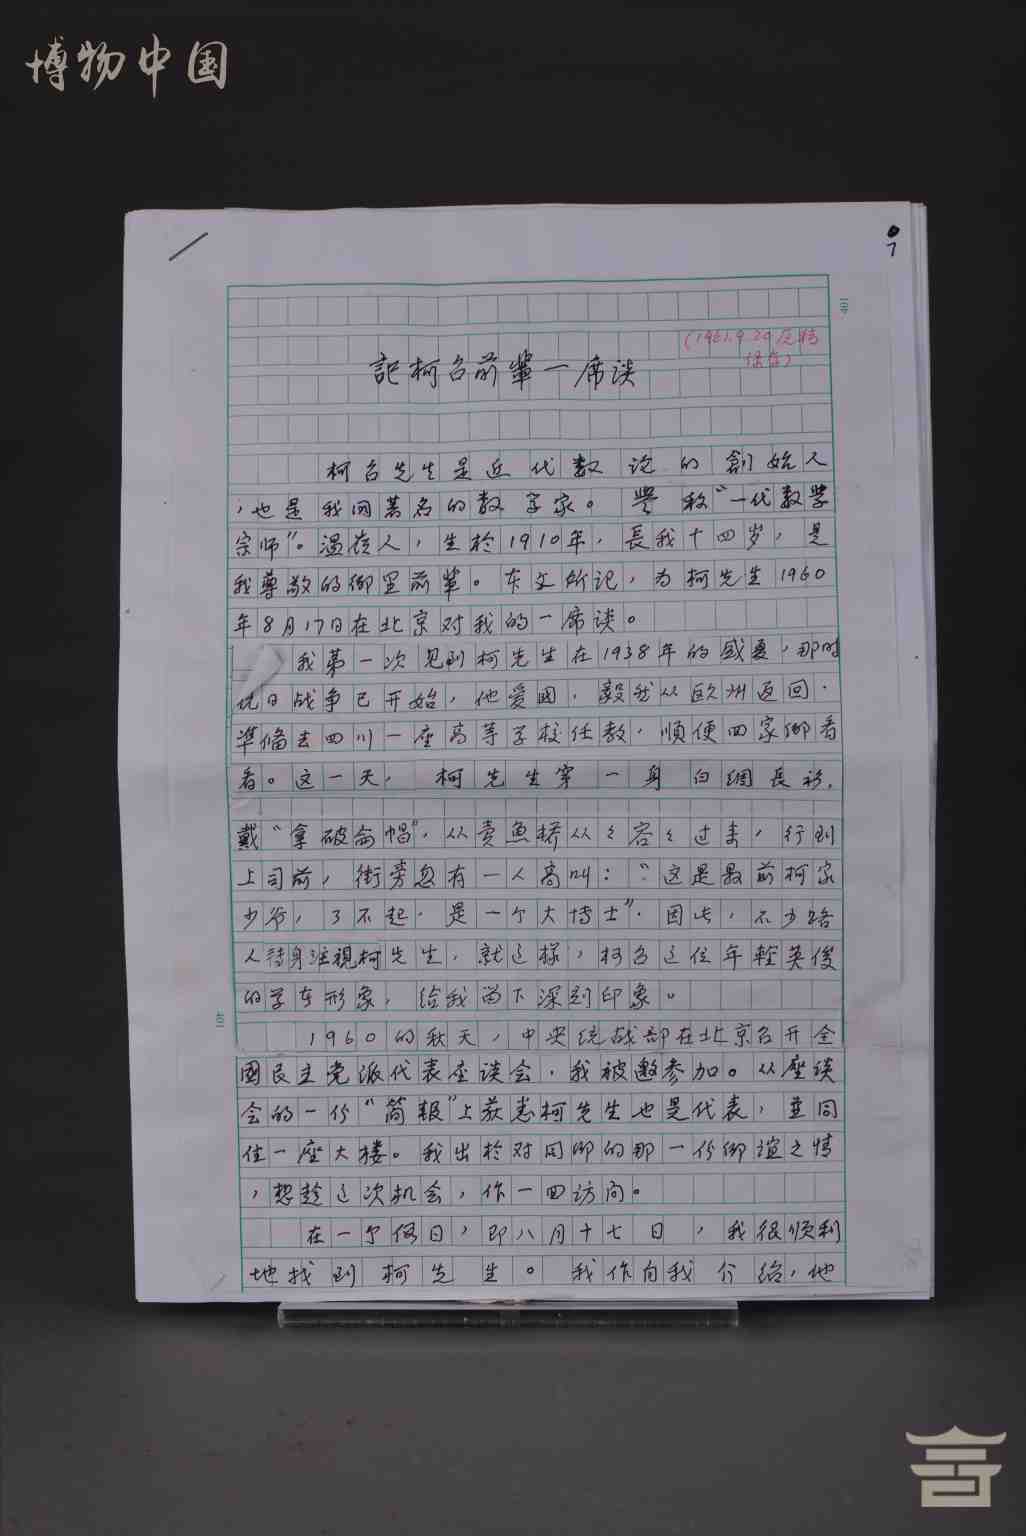 博物中国
7
(1961.9.24
記柯召前輩一席谈
柯召先生是近代数论的創始人
，也是我国著名的数学家。誉称“一代数学
宗师”。温岭人，生於1910年，長我十四岁，是
我尊敬的鄉里前輩。本文所记，为柯先生1960
年8月17日在北京对我的一席谈。
我第一次见到柯先生在1938年的盛夏，那时
抗日战争已开始，他爱國，毅然从欧洲返回.
準俻去四川一座高等学校任教，順便回家鄉看
看。这一天，柯先生穿一身白綢長衫，
戴“拿破侖帽”，从卖魚桥从々容々过来，行到
上司前，街旁忽有一人高叫：“这是最前柯家
少爷，了不起，是一个大博士”. 因此，不少路
人转身注視柯先生，就这樣，柯召这位年輕英俊
的学者形象，给我留下深刻印象。
1960的秋天，中央统战部在北京召开全
國民主党派代表座谈会，我被邀参加。从座谈
会的一份“简報”上获悉柯先生也是代表，並同
住一座大楼。我出於对同鄉的那一份鄉誼之情
，想趁这次机会，作一回访问。
在一个假日，即八月十七日，我很顺利
地找到柯先生。我作自我介绍，他